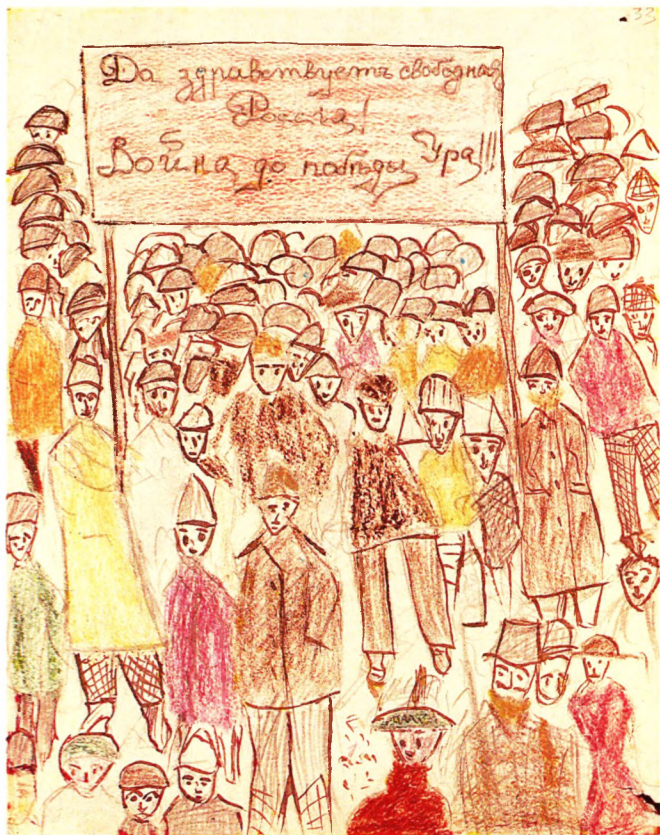 33
Да здравствуетъ свободная
Россія!
Война до побѣды Ура!!!